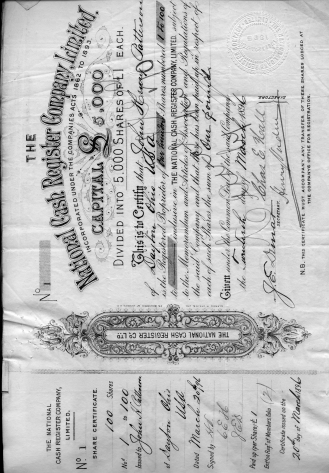 THE NATIONAL
CASH REGISTER COMPANY,
LIMITED.
SHARE CERTIFICATE.
No 1
100 Shares
Nos 1 to 100
Issued to John H.
of Dayton Ohio
USA
Dated March 20/96
Signed by
Paid up per Share £1
Entered Reg. of Members Folio (2)
Certificate issued on the
20 day of March 1896
THE NATIONAL CASH REGISTER CO LTD
No 1
THE
National Cash Register Company, Limited.
INCORPORATED UNDER THE COMPANIES ACTS 1862 TO 1893.
CAPITAL £5,000
DIVIDED INTO 5,000 SHARES OF £1 EACH.
This is to Certify that John Henry Patterson
of Dayton Ohio USA
is the Registered Proprietor of one hundred Shares numbered 1 to 100
inclusive in THE NATIONAL CASH REGISTER COMPANY, LIMITED, subject
to the Memorandum and Articles of Association and Regulations of
the said Company and that
each of such Shares the sum of One Pound
Given under the Common Seal of the said Company
the Twentieth day of March 1896
DIRECTORS
N.B. THIS CERTIFICATE MUST ACCOMPANY ANY TRANSFER OF THESE SHARES LODGED AT
THE COMPANY'S OFFICE FOR REGISTRATION.